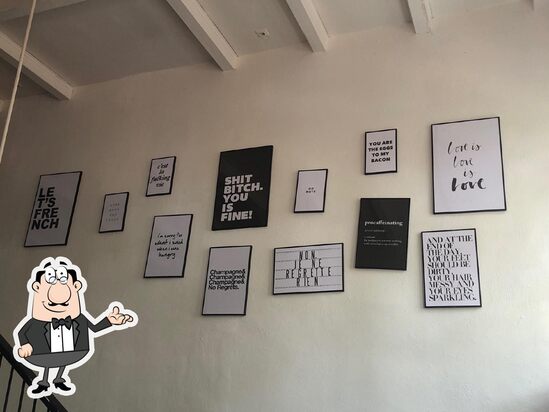 LE
T'S
FRE
NCH
c'est la
fucking
vie
i'm sorry for
what i said
when i was
hungry
SHIT
BITCH.
YOU
IS
FINE!
Champagne&
Champagne&
Champagne&
No Regrets.
NON
JE NE
REGRETTE
RIEN
YOU ARE
THE EGGS
TO MY
BACON
procaffeinating
Love is
love is
love
AND AT THE
END OF
THE DAY,
YOUR FEET
SHOULD BE
DIRTY,
YOUR HAIR
MESSY AND
YOUR EYES
SPARKLING.